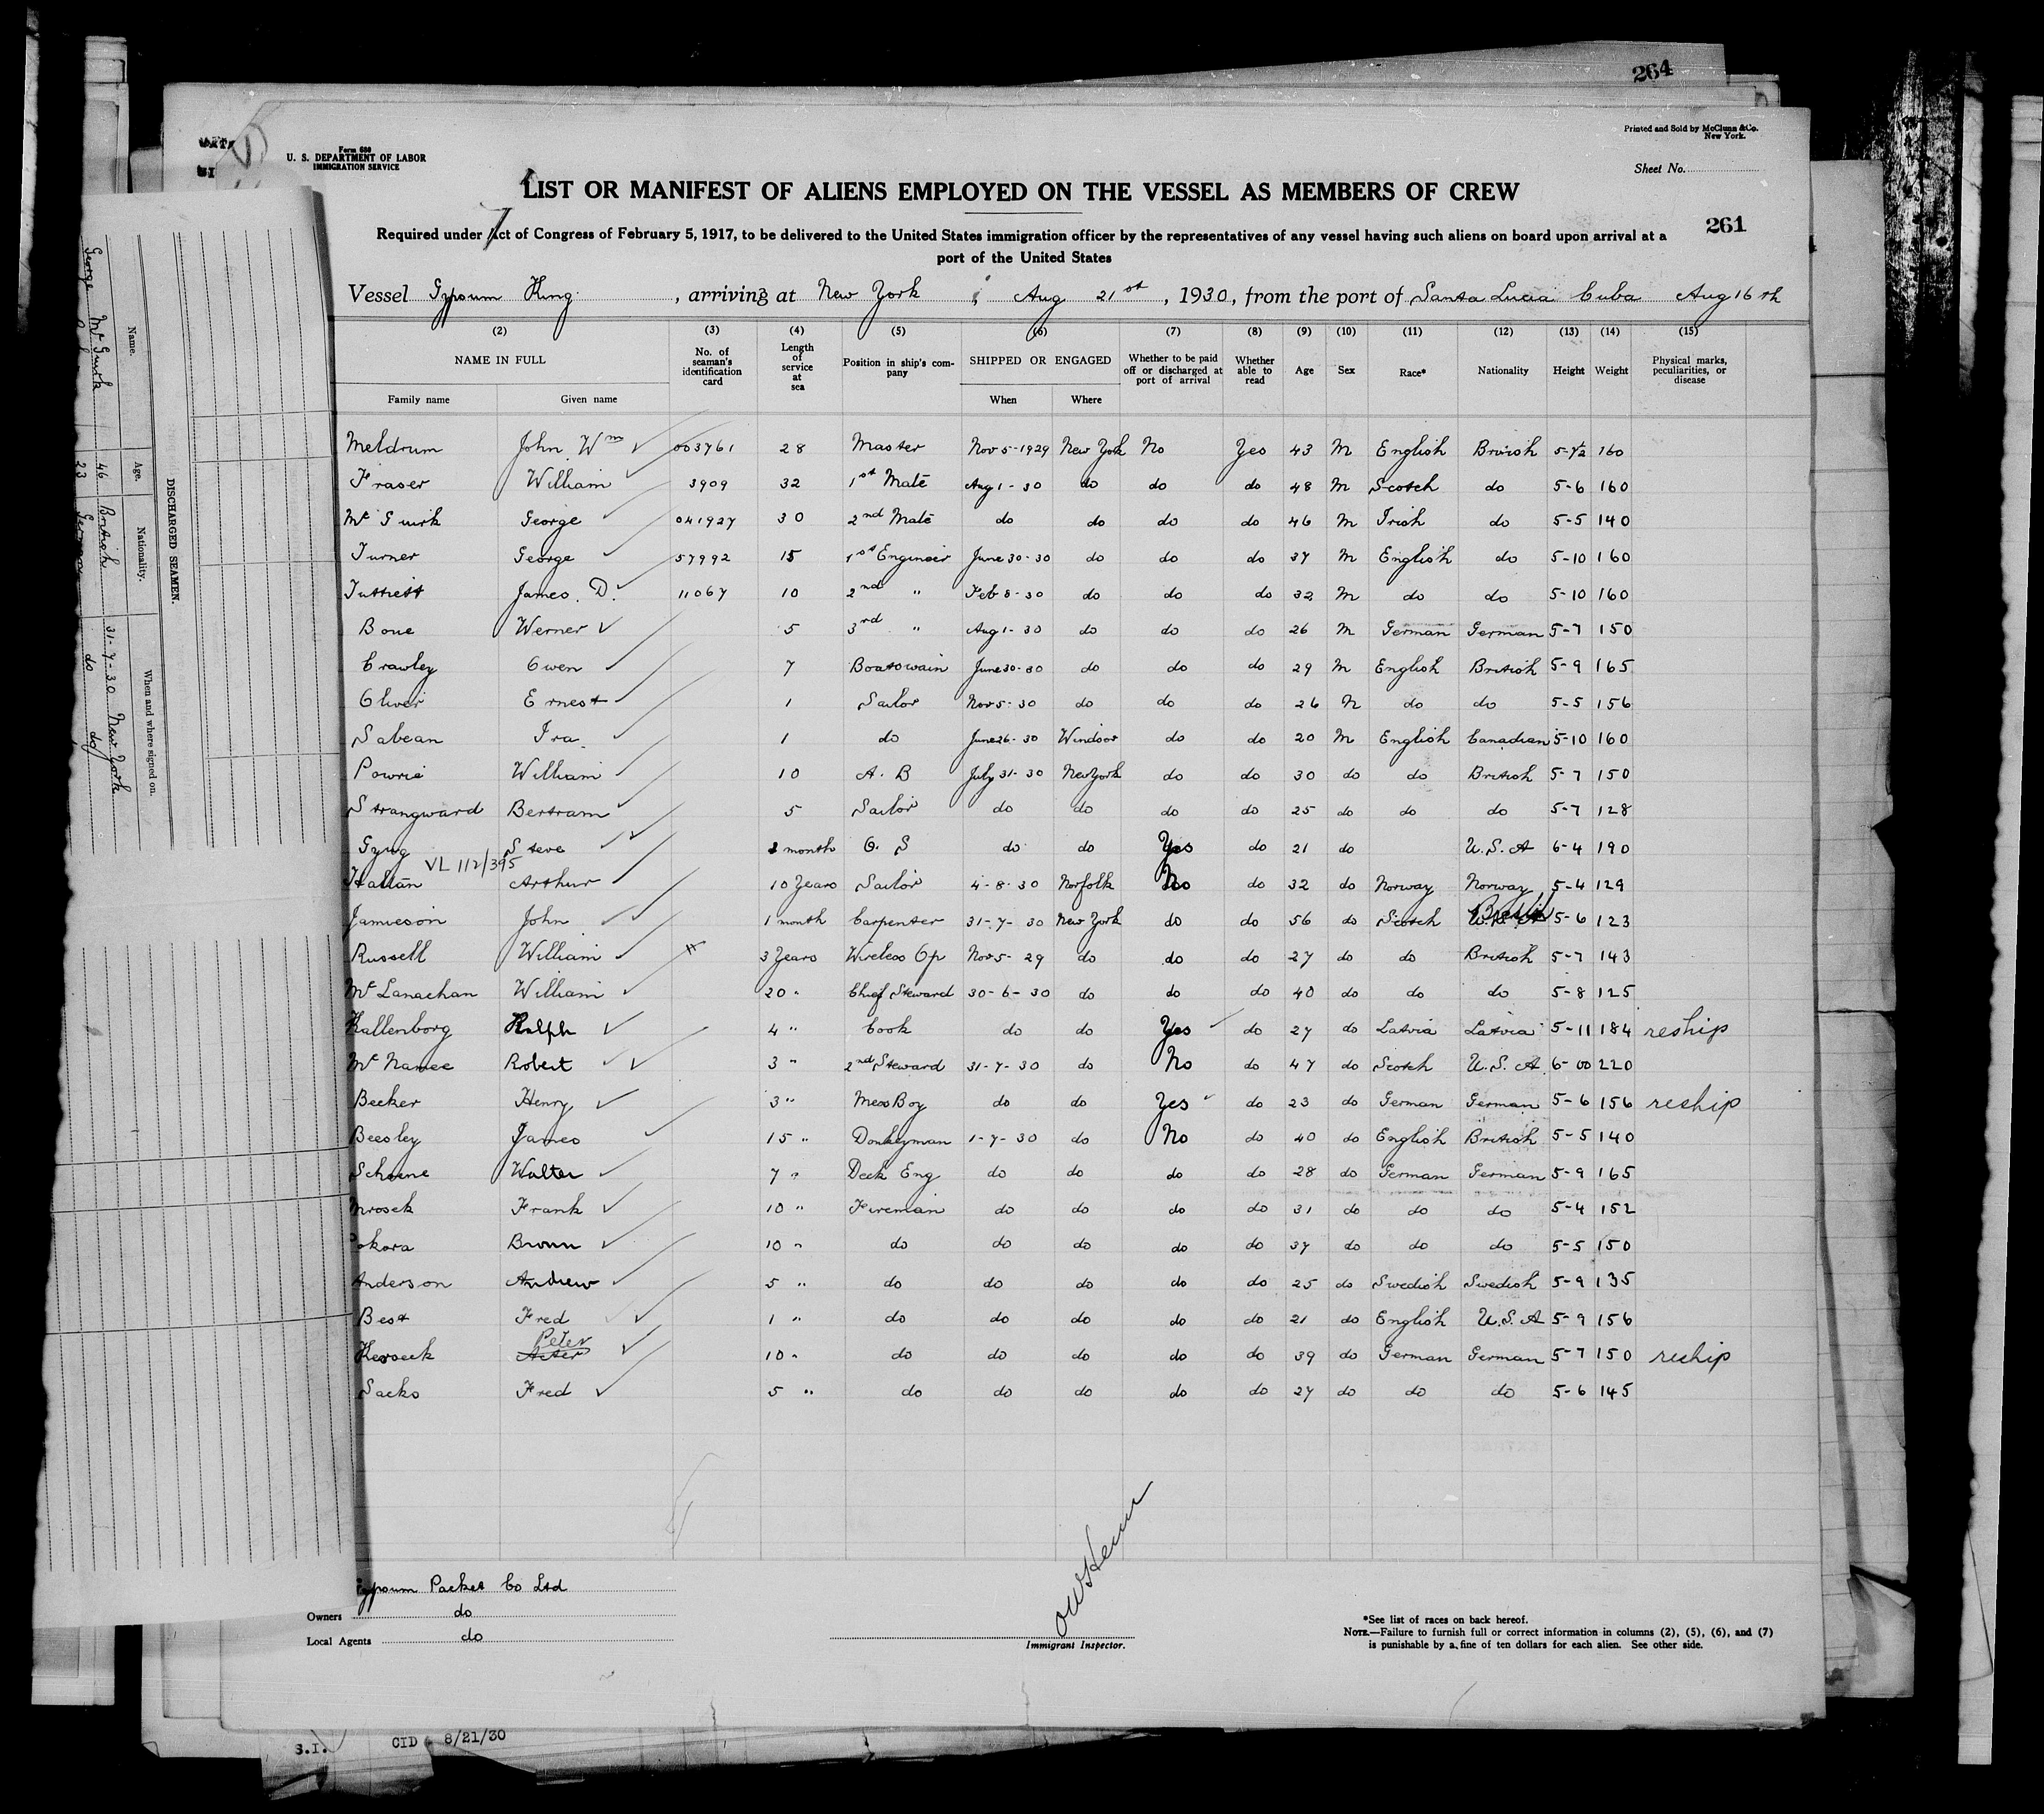 264
Printed and Sold by McClunn & Co.
New York.
Form 680
U. S. DEPARTMENT OF LABOR
IMMIGRATION SERVICE
Sheet No.
LIST OR MANIFEST OF ALIENS EMPLOYED ON THE VESSEL AS MEMBERS OF CREW
261
Required under Act of Congress of February 5, 1917, to be delivered to the United States immigration officer by the representatives of any vessel having such aliens on board upon arrival at a
port of the United States
Vessel Gypsum King, arriving at New York, Aug 21st, 1930, from the port of Santa Lucia Cuba Aug 16th
(2) (3) (4) (5) (6) (7) (8) (9) (10) (11) (12) (13) (14) (15)
NAME IN FULL No. of seaman's identification card Length of service at sea Position in ship's company SHIPPED OR ENGAGED Whether to be paid off or discharged at port of arrival Whether able to read Age Sex Race* Nationality Height Weight Physical marks, peculiarities, or disease
Family name Given name When Where
Meldrum John Wm 003761 28 Master Nov 5-1929 New York No Yes 43 M English British 5-7½ 160
Fraser William 3909 32 1st Mate Aug 1-30 do do do 48 M Scotch do 5-6 160
Mc Guirk George 041927 30 2nd Mate do do do do 46 M Irish do 5-5 140
Turner George 57992 15 1st Engineer June 30-30 do do do 37 M English do 5-10 160
Tuttiett James D. 11067 10 2nd " Feb 8-30 do do do 32 M do do 5-10 160
Boue Werner 5 3rd " Aug 1-30 do do do 26 M German German 5-7 150
Crawley Owen 7 Boatswain June 30-30 do do do 29 M English British 5-9 165
Oliver Ernest 1 Sailor Nov 5-30 do do do 26 M do do 5-5 156
Sabean Ira 1 do June 26-30 Windsor do do 20 M English Canadian 5-10 160
Powrie William 10 A. B July 31-30 New York do do 30 do do British 5-7 150
Strangward Bertram 5 Sailor do do do do 25 do do do 5-7 128
Gyug Steve month O. S do do Yes do 21 do U.S.A 6-4 190
VL 112/395
Arthur 10 Years Sailor 4-8-30 Norfolk No do 32 do Norway Norway 5-4 129
Jamieson John 1 month Carpenter 31-7-30 New York do do 56 do Scotch British 5-6 123
Russell William 3 Years Wireless Op Nov 5-29 do do do 27 do do British 5-7 143
Mc Lanachan William 20 " Chief Steward 30-6-30 do do do 40 do do do 5-8 125
Kallenborg Ralph 4 " Cook do do Yes do 27 do Latvia Latvia 5-11 184 reship
Mc Namee Robert 3 " 2nd Steward 31-7-30 do No do 47 do Scotch U.S.A. 6-00 220
Becker Henry 3 " Mess Boy do do Yes do 23 do German German 5-6 156 reship
Beesley James 15 " Donkeyman 1-7-30 do No do 40 do English British 5-5 140
Schoene Walter 7 " Deck Eng do do do do 28 do German German 5-9 165
Mrosek Frank 10 " Fireman do do do do 31 do do do 5-4 152
okora Bruno 10 " do do do do do 37 do do do 5-5 150
Anderson Andrew 5 " do do do do do 25 do Swedish Swedish 5-9 135
Best Fred 1 " do do do do do 21 do English U.S.A 5-9 156
Peter
10 " do do do do do 39 do German German 5-7 150 reship
Sacks Fred 5 " do do do do do 27 do do do 5-6 145
Gypsum Packet Co Ltd
Owners do
Local Agents do
Immigrant Inspector.
*See list of races on back hereof.
NOTE.—Failure to furnish full or correct information in columns (2), (5), (6), and (7)
is punishable by a fine of ten dollars for each alien. See other side.
S.I. CID 8/21/30
DISCHARGED SEAMEN.
Name. Age. Nationality. When and where signed on.
Mc Guirk 46 British 31-7-30 New York
George 23 German do do